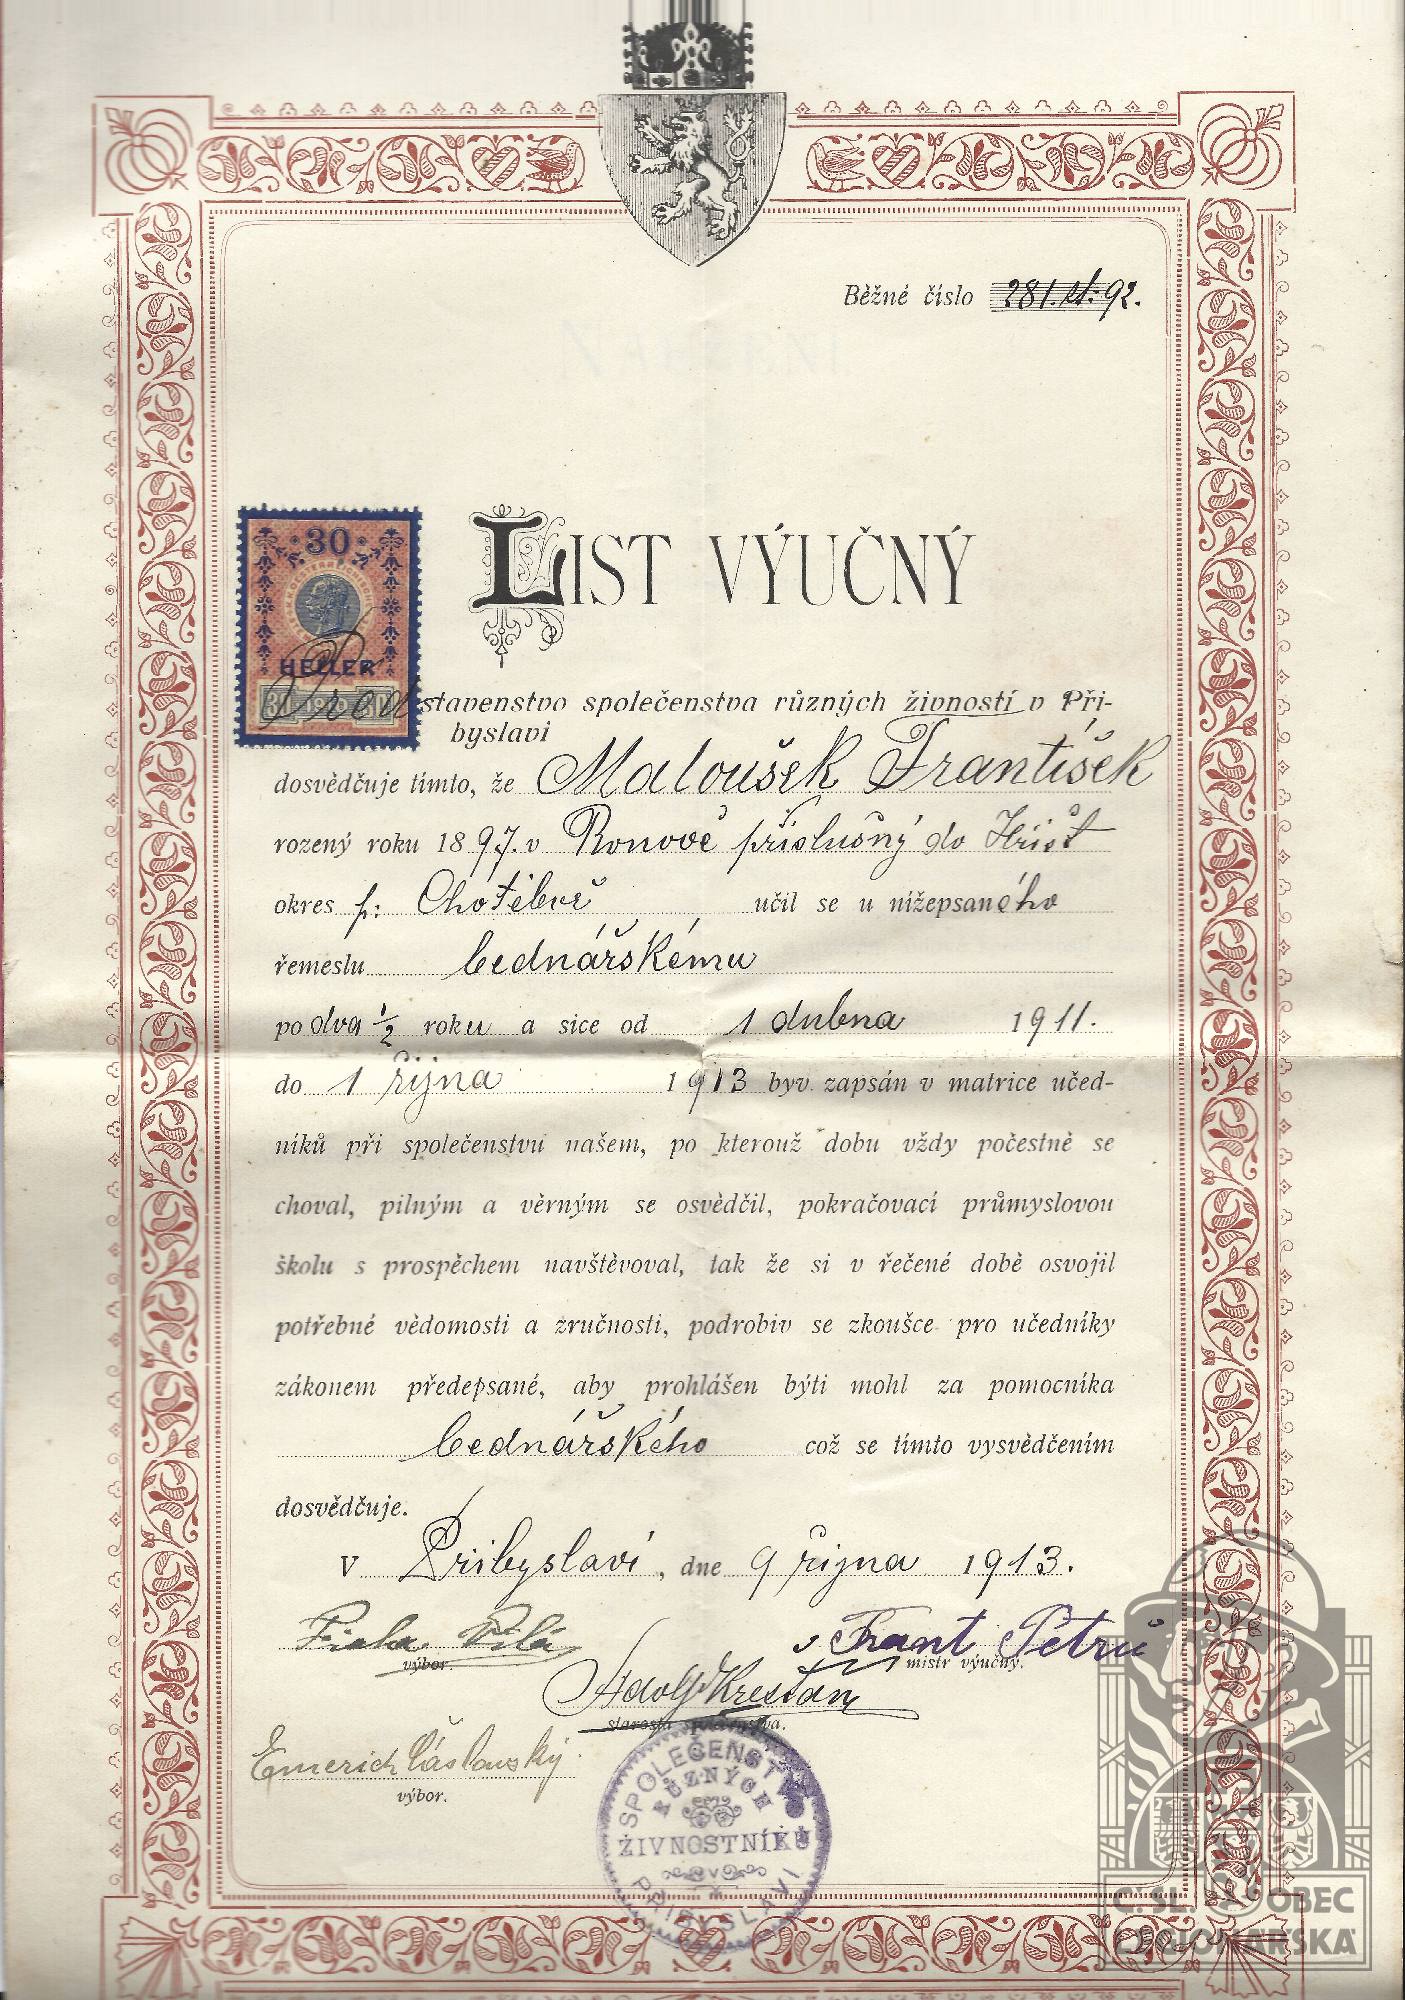 Běžné číslo 281. 92.
30
HELLER
LIST VÝUČNÝ
Představenstvo společenstva různých živností v Při-
byslavi
dosvědčuje tímto, že Maloušek František
rozený roku 1897. v Ronově příslušný do Hřišť
okres p: Chotěboř učil se u nížepsaného
řemeslu bednářskému
po dva ½ roku a sice od 1 dubna 1911.
do 1 října 1913 byv zapsán v matrice učed-
níků při společenstvu našem, po kterouž dobu vždy počestně se
choval, pilným a věrným se osvědčil, pokračovací průmyslovou
školu s prospěchem navštěvoval, tak že si v řečené době osvojil
potřebné vědomosti a zručnosti, podrobiv se zkoušce pro učedníky
zákonem předepsané, aby prohlášen býti mohl za pomocníka
bednářského což se tímto vysvědčením
dosvědčuje.
V Přibyslavi, dne 9 října 1913.
Fiala
výbor.
Frant Petrů
mistr výučný.
Adolf Křesťan
starosta společenstva.
Emerich Čáslavský.
výbor.
SPOLEČENSTVO
RŮZNÝCH
ŽIVNOSTNÍKŮ
V
PŘIBYSLAVI
Č. SL. OBEC
LEGIONÁŘSKÁ